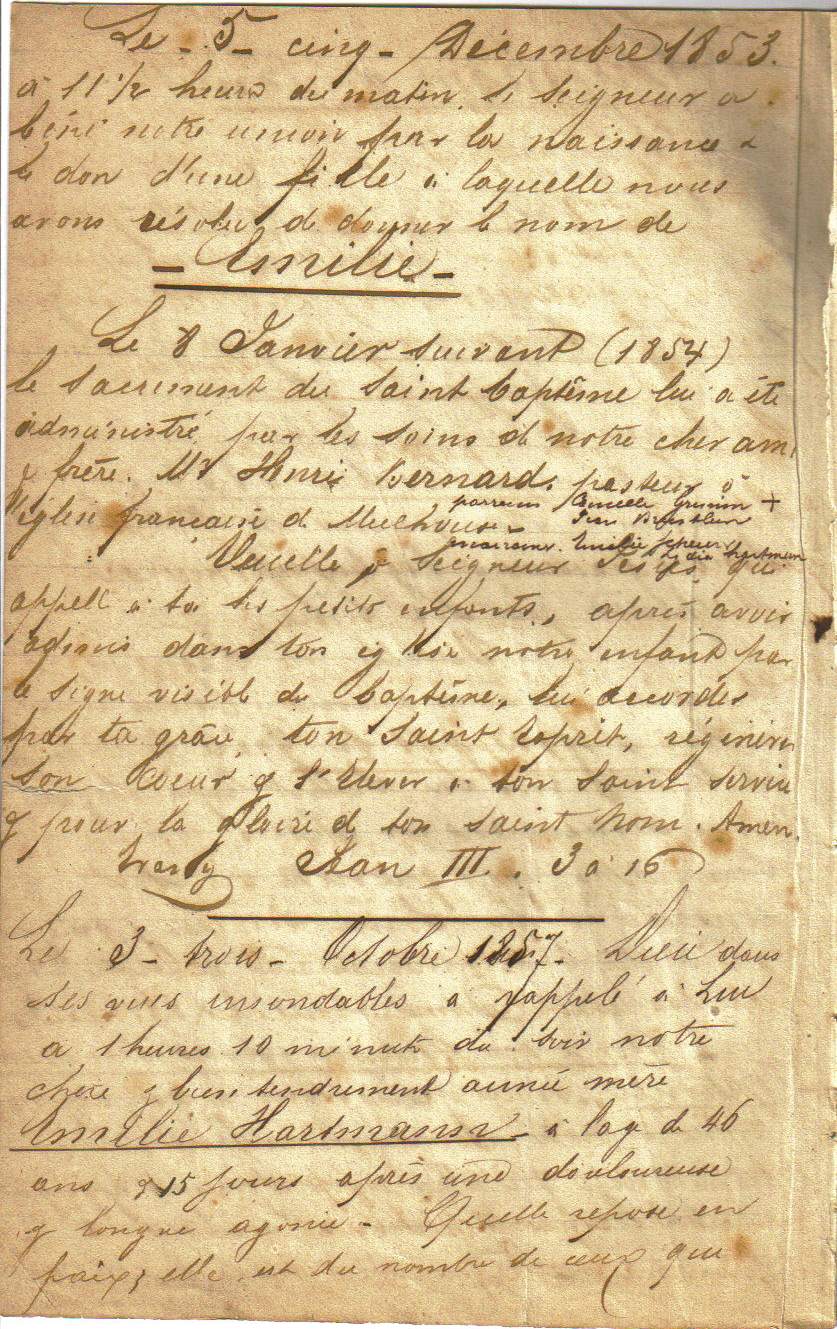 Le - 5 - cinq - Décembre 1853.
à 11 1/2 heures du matin, le Seigneur a
béni notre union par la naissance &
le don d'une fille à laquelle nous
avons résolu de donner le nom de
- Emilie -
Le 8 Janvier suivant (1854)
le sacrement du Saint baptême lui a été
administré par les soins de notre cher ami
& frère. Mr Henri Bernard. pasteur à
l'église française de Mulhouse.
parrains Grimm +
Jean
marraines. Emilie Scheurer
Hartmann
Veuille, o Seigneur Jésus qui
appell à toi les petits enfants, après avoir
admis dans ton église notre enfant par
le signe visible du baptême, lui accorder
par ta grâce, ton Saint Esprit, régénérer
son coeur & l'élever à ton saint service
& pour la gloire de ton saint nom. Amen.
Jean III. 3 à 16
Le 3 - trois - Octobre 1857 - Dieu dans
ses vues insondables a rappelé à Lui
à 1 heures 10 minuts du soir notre
chère & bien tendrement aimée mère
Emilie Hartmann à l'age de 46
ans & 15 jours après une douloureuse
& longue agonie - Qu'elle repose en
paix, elle est du nombre de ceux qui